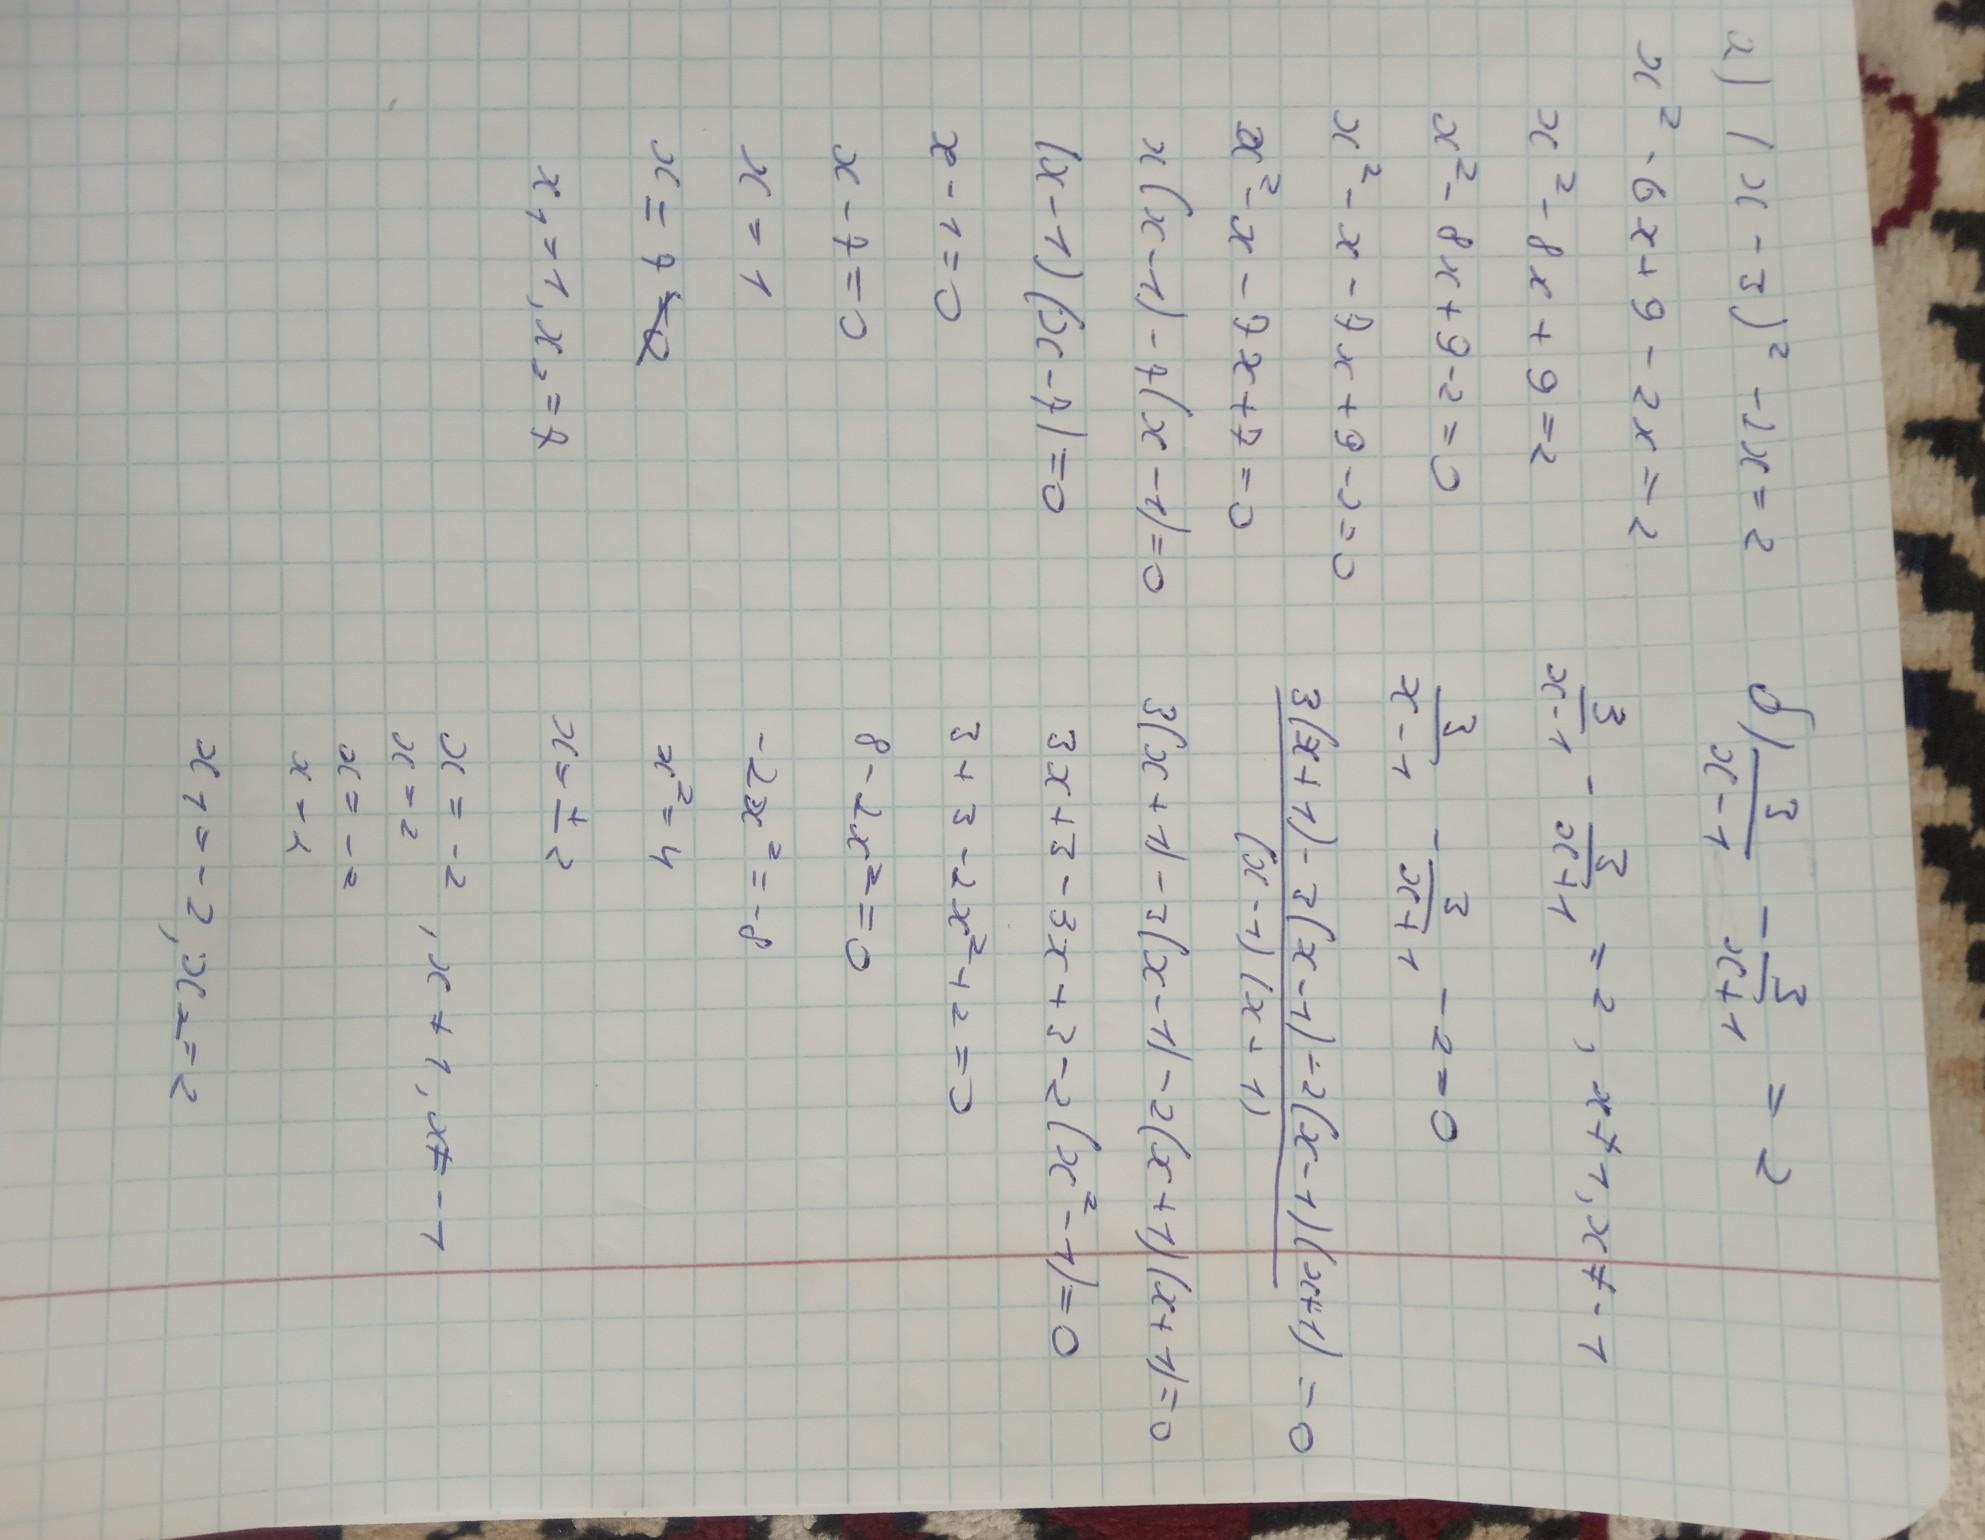 а) (x-3)² - 2x = 2
x² - 6x + 9 - 2x = 2
x² - 8x + 9 = 2
x² - 8x + 9 - 2 = 0
x² - x - 7x + 9 - 2 = 0
x² - x - 7x + 7 = 0
x(x-1) - 7(x-1) = 0
(x-1)(x-7) = 0
x - 1 = 0
x - 7 = 0
x = 1
x = 7
x₁ = 1, x₂ = 7
б) 3/(x-1) - 3/(x+1) = 2
3/(x-1) - 3/(x+1) = 2, x ≠ 1, x ≠ -1
3/(x-1) - 3/(x+1) - 2 = 0
3(x+1) - 3(x-1) - 2(x-1)(x+1) = 0
(x-1)(x+1)
3(x+1) - 3(x-1) - 2(x+1)(x+1) = 0
3x + 3 - 3x + 3 - 2(x²-1) = 0
3 + 3 - 2x² + 2 = 0
8 - 2x² = 0
-2x² = -8
x² = 4
x = ± 2
x = -2, x ≠ 1, x ≠ -1
x = 2
x = -2
x = 2
x₁ = -2, x₂ = 2